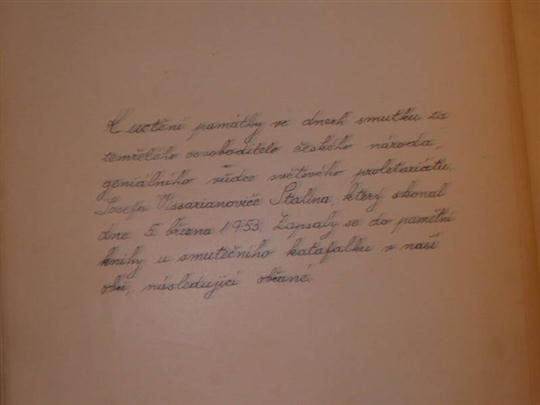 K uctění památky ve dnech smutku za
zemřelého osvoboditele českého národa,
geniálního vůdce světového proletariátu,
Josefa Vissarianoviče Stalina, který skonal
dne 5. března 1953, Zapsaly se do pamětní
knihy u smutečního katafalku v naší
obci, následující občané.